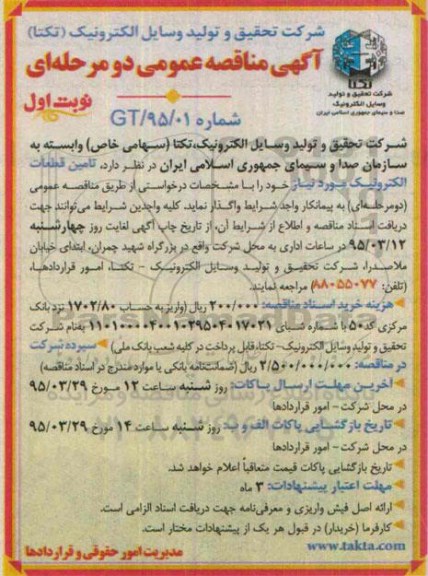 شرکت تحقیق و تولید وسایل الکترونیک (تکتا)
آگهی مناقصه عمومی دو مرحله‌ای
نوبت اول
شماره GT/۹۵/۰۱
تکتا
شرکت تحقیق و تولید
وسایل الکترونیک
صدا و سیمای جمهوری اسلامی ایران
شرکت تحقیق و تولید وسایل الکترونیک،تکتا (سهامی خاص) وابسته به
سازمان صدا و سیمای جمهوری اسلامی ایران در نظر دارد، تامین قطعات
الکترونیک مورد نیاز خود را با مشخصات درخواستی از طریق مناقصه عمومی
(دومرحله‌ای) به پیمانکار واجد شرایط واگذار نماید. کلیه واجدین شرایط می‌توانند جهت
دریافت اسناد مناقصه و اطلاع از شرایط آن، از تاریخ چاپ آگهی لغایت روز چهارشنبه
۹۵/۰۳/۱۲ در ساعات اداری به محل شرکت واقع در بزرگراه شهید چمران، ابتدای خیابان
ملاصدرا، شرکت تحقیق و تولید وسایل الکترونیک - تکتا، امور قراردادها،
(تلفن: ۸۸۰۵۵۰۷۷) مراجعه نمایند.
هزینه خرید اسناد مناقصه: ۲۰۰/۰۰۰ ریال (واریز به حساب ۱۷۰۲/۸۰ نزد بانک
مرکزی کد۵۰ با شماره شبای ۱۱۰۱۰۰۰۰۴۰۰۱۰۲۹۵۴۰۱۷۰۲۱ بنام شرکت
تحقیق و تولید وسایل الکترونیک- تکتا، قابل پرداخت در کلیه شعب بانک ملی) سپرده شرکت
در مناقصه: ۲/۵۰۰/۰۰۰/۰۰۰ ریال (ضمانتنامه بانکی یا موارد مندرج در اسناد مناقصه)
آخرین مهلت ارسال پاکات: روز شنبه ساعت ۱۲ مورخ ۹۵/۰۳/۲۹
در محل شرکت - امور قراردادها
تاریخ بازگشایی پاکات الف و ب: روز شنبه ساعت ۱۴ مورخ ۹۵/۰۳/۲۹
در محل شرکت - امور قراردادها
تاریخ بازگشایی پاکات قیمت متعاقباً اعلام خواهد شد.
مهلت اعتبار پیشنهادات: ۳ ماه
ارائه اصل فیش واریزی و معرفی‌نامه جهت دریافت اسناد الزامی است.
کارفرما (خریدار) در قبول هر یک از پیشنهادات مختار است.
www.takta.com
مدیریت امور حقوقی و قراردادها